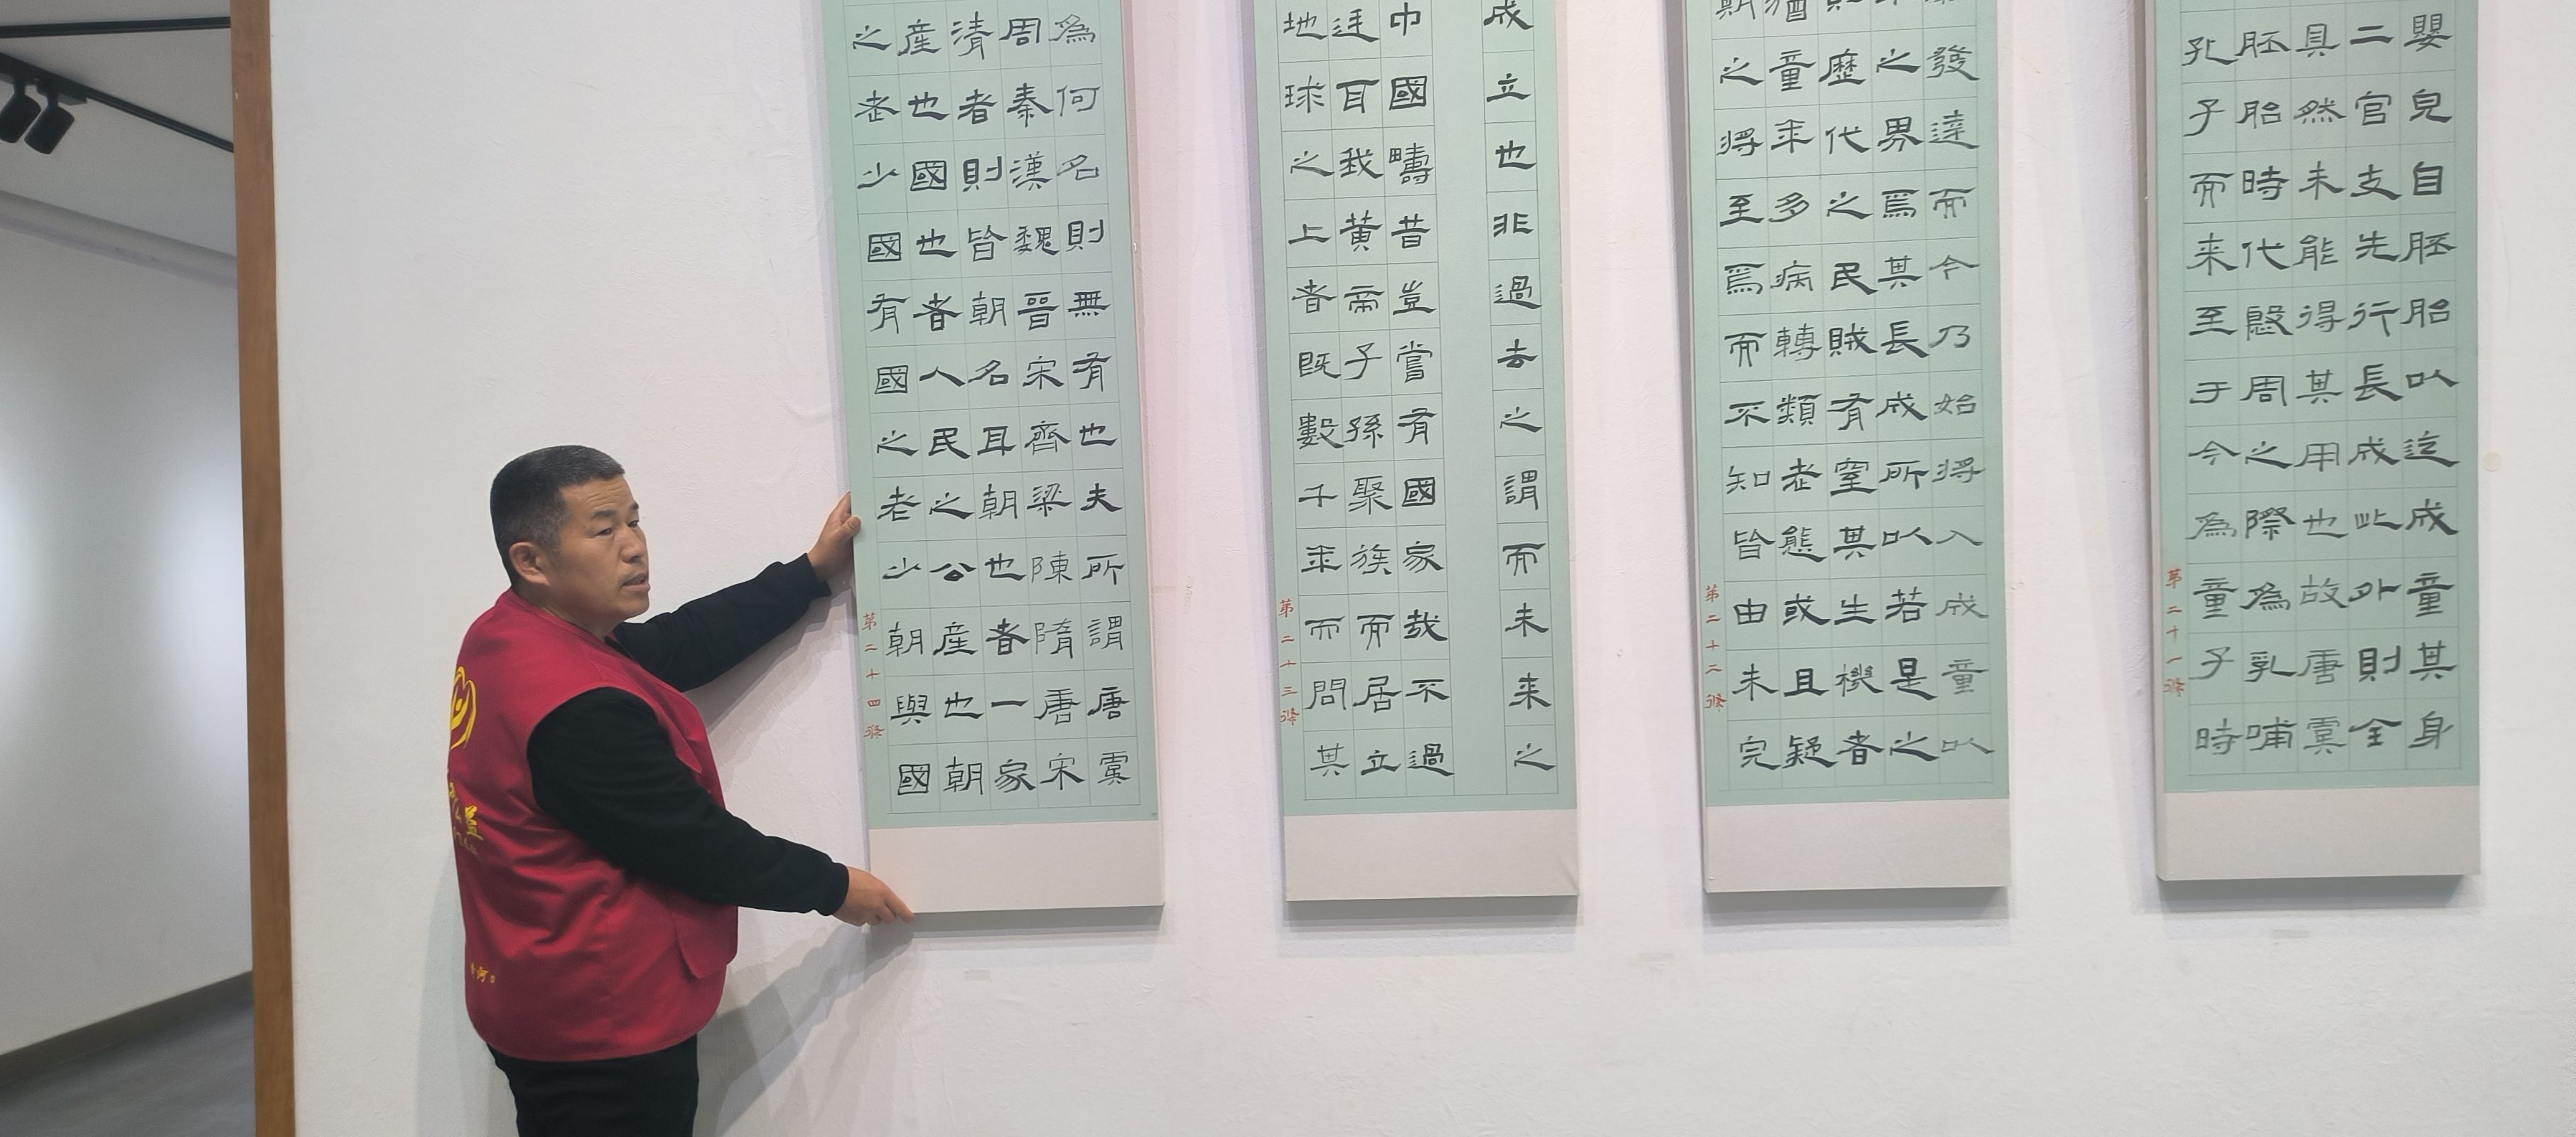 嬰兒自胚胎以迄成童其身
二官支先行長成此外則全
具然未能得其用也故唐虞
胚胎時代殷周之際為乳哺
孔子而来至于今為童子時
第二十一條
發達而今乃始將入成童以
之界焉其長成所以若是之
歷代之民賊有窒其生機者
童年多病轉類老態或且疑
之將至焉而不知皆由未完
第二十二條
成立也非過去之謂而未来之
中國疇昔豈嘗有國家哉不過
廷耳我黃帝子孫聚族而居立
地球之上者既數千年而問其
第二十三條
為何名則無有也夫所謂唐虞
周秦漢魏晉宋齊梁陳隋唐宋
清者則皆朝名耳朝也者一家
產也國也者人民之公產也朝
之老少國有國之老少朝與國
第二十四條
公益